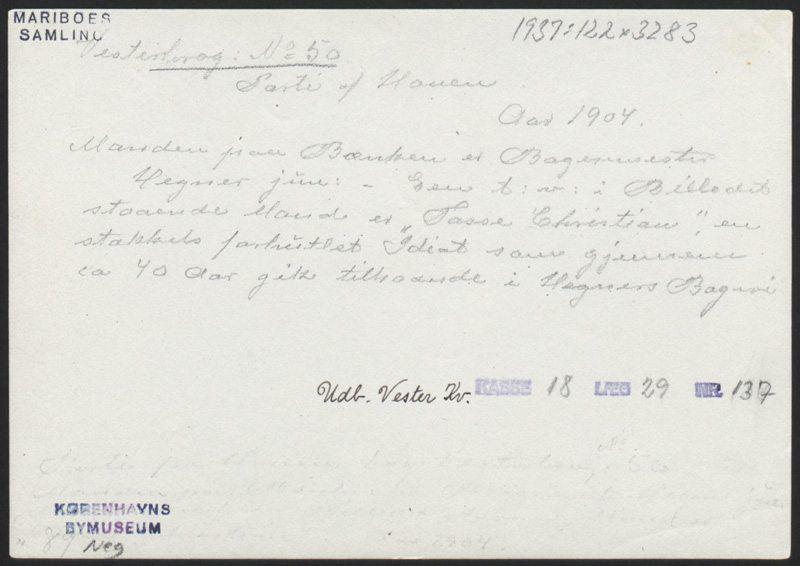 MARIBOES
SAMLING
1937:122x3283
Vesterbrog: No 50
Parti af Haven
Aar 1904.
Manden paa Bænken er Bagermester
Hegner jun: - Den t: v: i Billedet
staaende Mand er "Tasse Christian", en
stakkels forhutlet Idiot som gjennem
ca 40 Aar gik tilhaande i Hegners Bageri
Udb. Vester Kv. KASSE 18 LÆG 29 NR. 137
50
KØBENHAVNS
BYMUSEUM
89
Neg
1904.